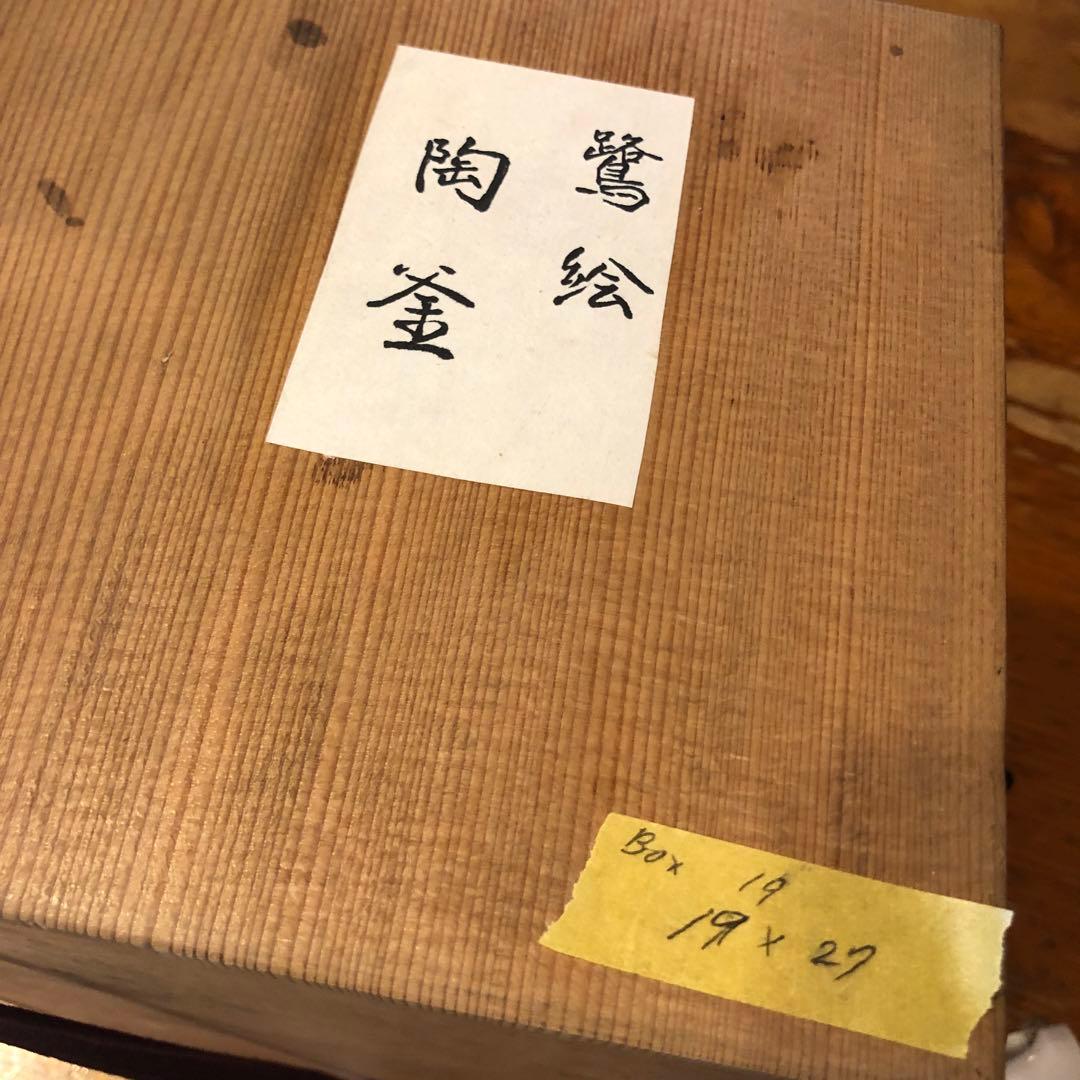 鷺絵
陶釜
Box 19
19 x 27